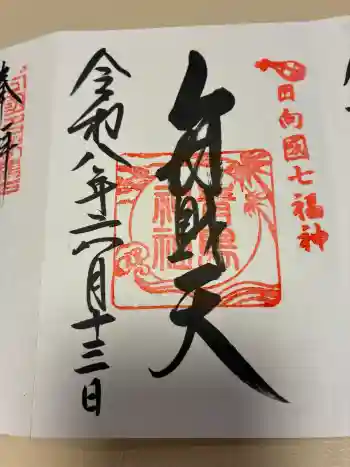 日向國七福神
弁財天
青島神社
令和八年六月十三日
奉拝